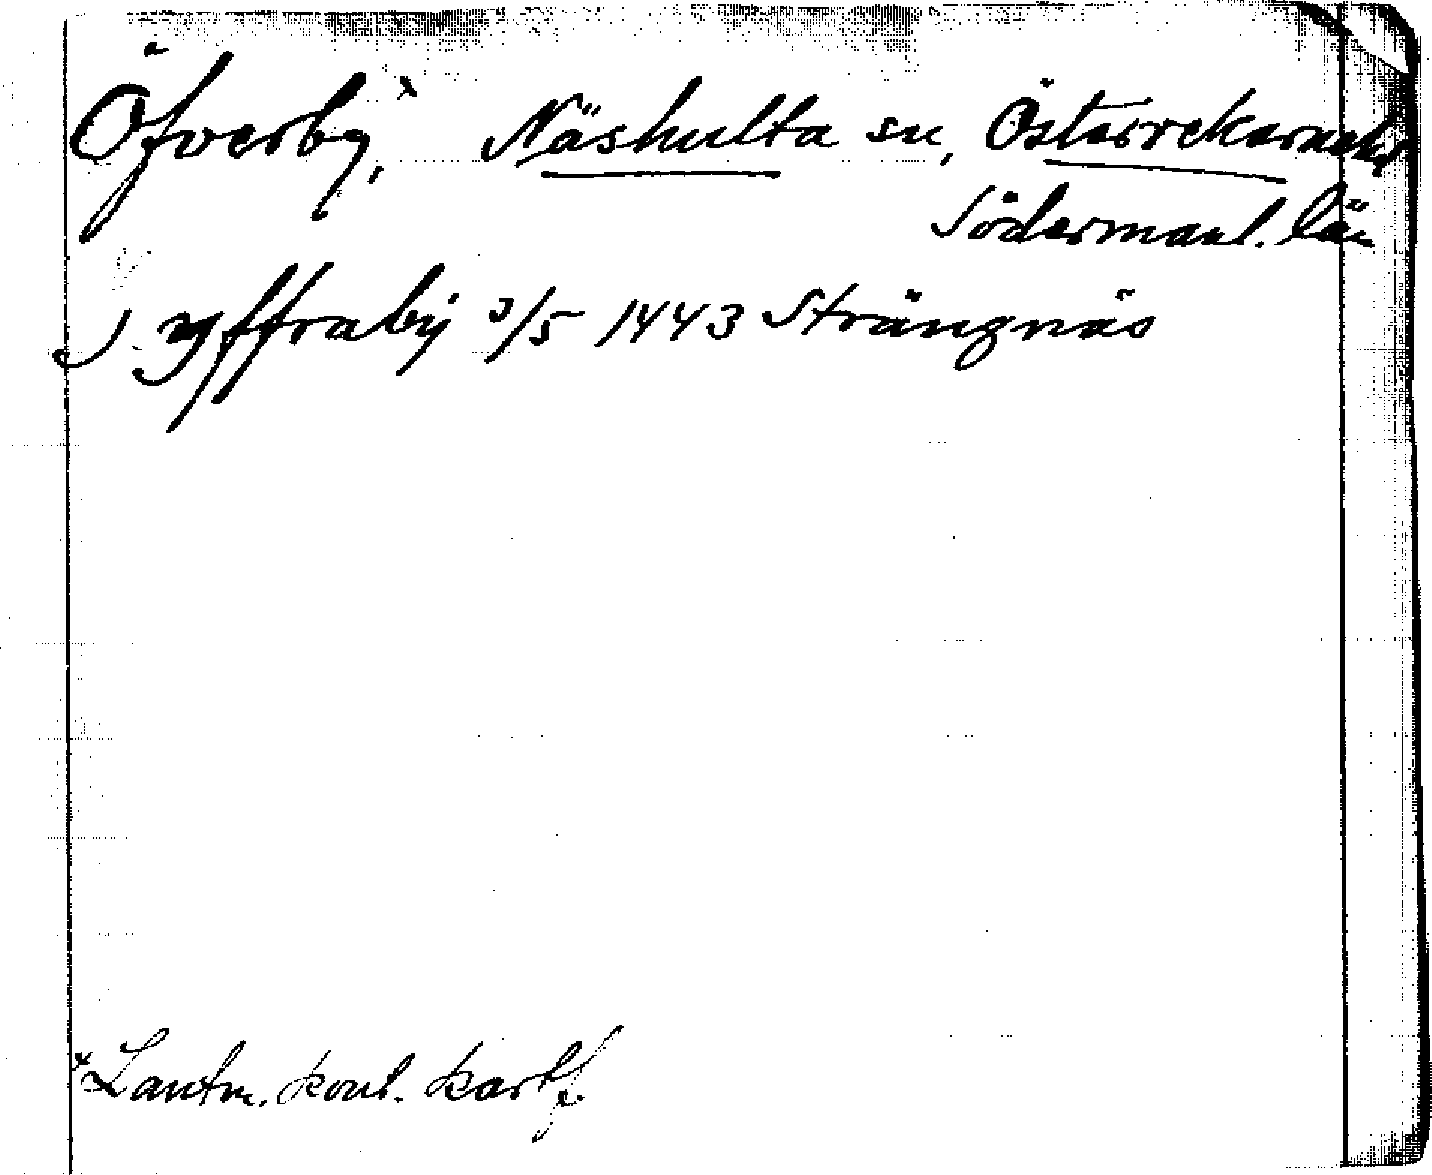 Öfverby,ˣ Näshulta sn, Österrekarnehd
Södermanl. län
J yffraby 3/5 1443 Strängnäs
ˣLantm. kont. kartf.